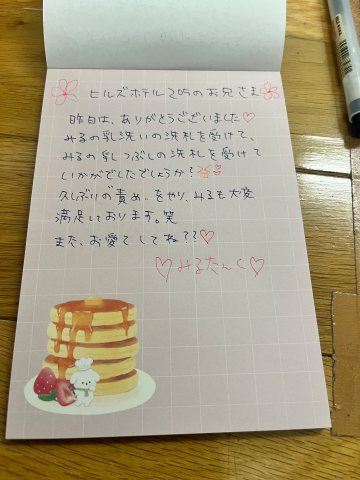 ヒルズホテル205のお兄さま
昨日は、ありがとうございました♡
みるの乳洗いの洗礼を受けて、
みるの乳つぶしの洗礼を受けて
いかがでしたでしょうか?
久しぶりの"責め"をやり、みるも大変
満足しております。笑
また、お愛てしてね??♡
♡みるたんく♡